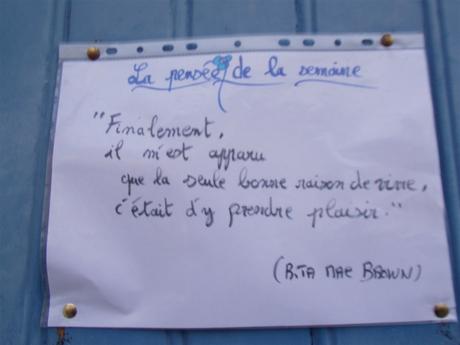 La pensée de la semaine
"Finalement,
il m'est apparu
que la seule bonne raison de vivre,
c'était d'y prendre plaisir."
(RITA MAE BROWN)